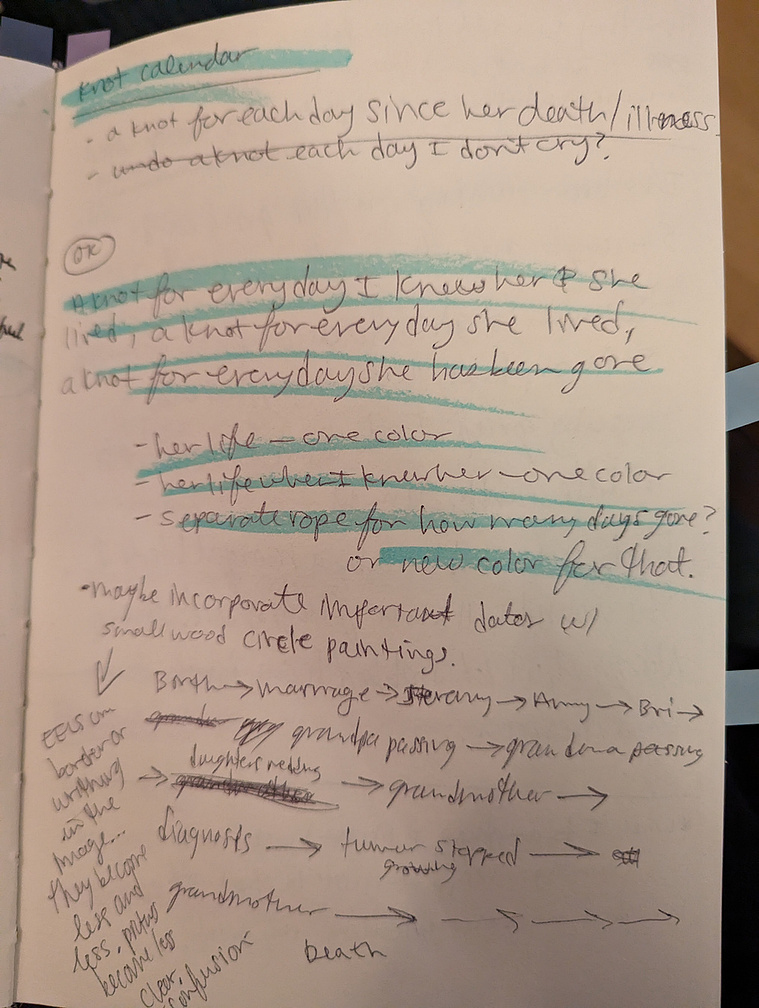 knot calendar
- a knot for each day since her death/illness
- undo a knot each day I don't cry?
OR
A knot for every day I knew her & she
lived, a knot for every day she lived,
a knot for every day she has been gone
- her life - one color
- her life when I knew her - one color
- separate rope for how many days gone?
or new color for that.
• maybe incorporate important dates w/
small wood circle paintings.
Birth → marriage → → Amy → Bri →
grandpa passing → grandma passing
daughters wedding
→ → grandmother →
diagnosis → tumor stopped →
growing
grandmother → → → →
Death
EEls on
border or
writhing
in the
image...
they become
less and
less.
become less
clear
confusion